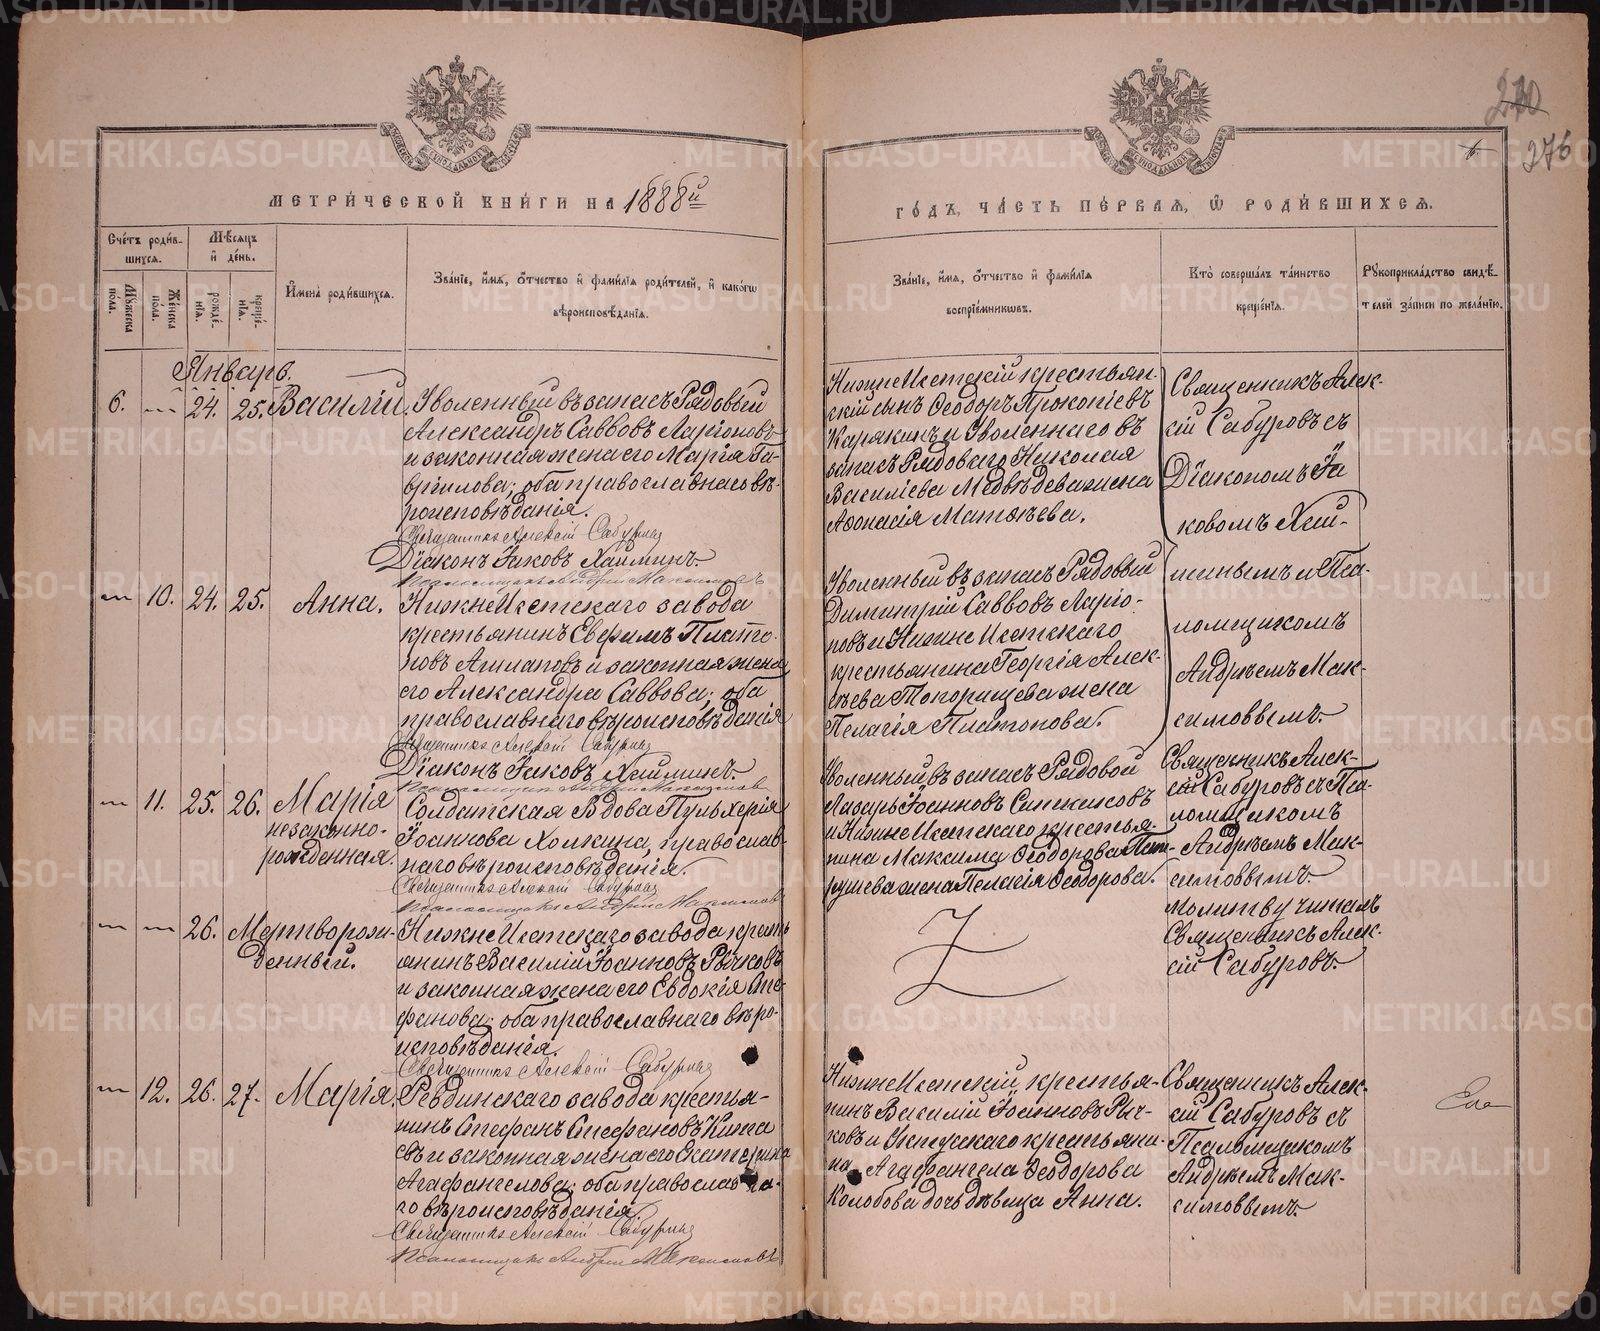 METRIKI.GASO-URAL.RU
270
276
МЕТРИ́ЧЕСКОЙ КНИ́ГИ НА 1888й
ГО́ДЪ, ЧА́СТЬ ПЕ́РВАЯ, Ѡ РОДИ́ВШИХСЯ.
Сче́тъ роди́в-
шихся.
Мѣ́сяцъ
и҆ де́нь.
Му́жеска по́ла.
Же́нска по́ла.
рожде́-
нїѧ.
креще́-
нїѧ.
И҆мена̀ роди́вшихся.
Зва́нїе, и҆́мѧ, ѻ҆́тчество и҆ фами́лїѧ роди́телей, и҆ како́гѡ
вѣроисповѣ́данїѧ.
Зва́нїе, и҆́мѧ, ѻ҆́тчество и҆ фами́лїѧ
воспрїе́мникѡвъ.
Кто̀ соверша́лъ та́инство
креще́нїѧ.
Рꙋкоприкла́дство свидѣ́-
телей за́писи по жела́нїю.
Январь.
6. 24. 25. Василій.
Уволенный въ запасъ Рядовый
Александръ Саввовъ Ларіоновъ
и законная жена его Марія Га-
вріилова; оба православнаго вѣ-
роисповѣданія.
Священникъ Алексій Сабуровъ
Діаконъ Іаковъ Хаминъ.
Псаломщикъ Андрей Максимовъ
НижнеИсетскій крестьян-
скій сынъ Ѳеодоръ Прокопіевъ
Карякинъ и Уволеннаго въ
запасъ Рядоваго Николая
Василіева Медвѣдева жена
Аѳонасія Матѳѣева.
Священникъ Алек-
сій Сабуровъ съ
Діакономъ Іа
ковомъ Хам-
инымъ и Пса-
ломщикомъ
Андреемъ Мак-
симовымъ.
10. 24. 25. Анна.
НижнеИсетскаго завода
крестьянинъ Евѳимъ Плато-
новъ и законная жена
его Александра Саввова; оба
православнаго вѣроисповѣданія
Священникъ Алексій Сабуровъ
Діаконъ Іаковъ Хаминъ.
Псаломщикъ Андрей Максимовъ
Уволенный въ запасъ Рядовый
Димитрій Саввовъ Ларіо-
новъ и НижнеИсетскаго
крестьянина Георгія Алек-
сѣева Топорищева жена
Пелагія Платонова.
11. 25. 26. Марія
незаконно-
рожденная.
Солдатская Вдова Пульхерія
Іоаннова Холкина, православ-
наго вѣроисповѣданія.
Священникъ Алексій Сабуровъ
Псаломщикъ Андрей Максимовъ
Уволенный въ запасъ Рядовой
Лазарь Іоанновъ Ситниковъ
и НижнеИсетскаго крестья-
нина Максима Ѳеодорова Пат-
рушева жена Пелагія Ѳеодорова.
Священникъ Алек-
сій Сабуровъ съ Пса-
ломщикомъ
Андреемъ Мак-
симовымъ.
26. Мертворож-
денный.
НижнеИсетскаго завода кресть
янинъ Василій Іоанновъ Рычковъ
и законная жена его Евдокія Сте-
фанова; оба православнаго вѣро-
исповѣданія.
Священникъ Алексій Сабуровъ
Молитву читалъ
Священникъ Алек-
сій Сабуровъ.
12. 26. 27. Марія.
Ревдинскаго завода крестья-
нинъ Стефанъ Стефановъ Кита
евъ и законная жена его Екатерина
Агафангелова; оба православна-
го вѣроисповѣданія.
Священникъ Алексій Сабуровъ
Псаломщикъ Андрей Максимовъ
НижнеИсетскій крестья-
нинъ Василій Іоанновъ Рыч-
ковъ и Уктусскаго крестьяни-
на Агафангела Ѳеодорова
Колобова дочь дѣвица Анна.
Священникъ Алек-
сій Сабуровъ съ
Псаломщикомъ
Андреемъ Мак-
симовымъ.